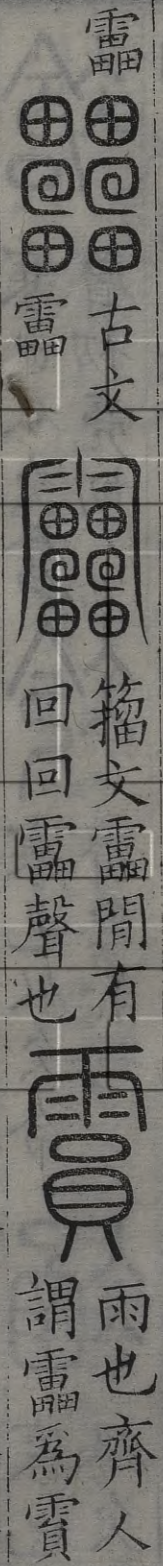 靁
古文
靁
籀文靁閒有
回回靁聲也
霣
雨也齊人
謂靁為霣